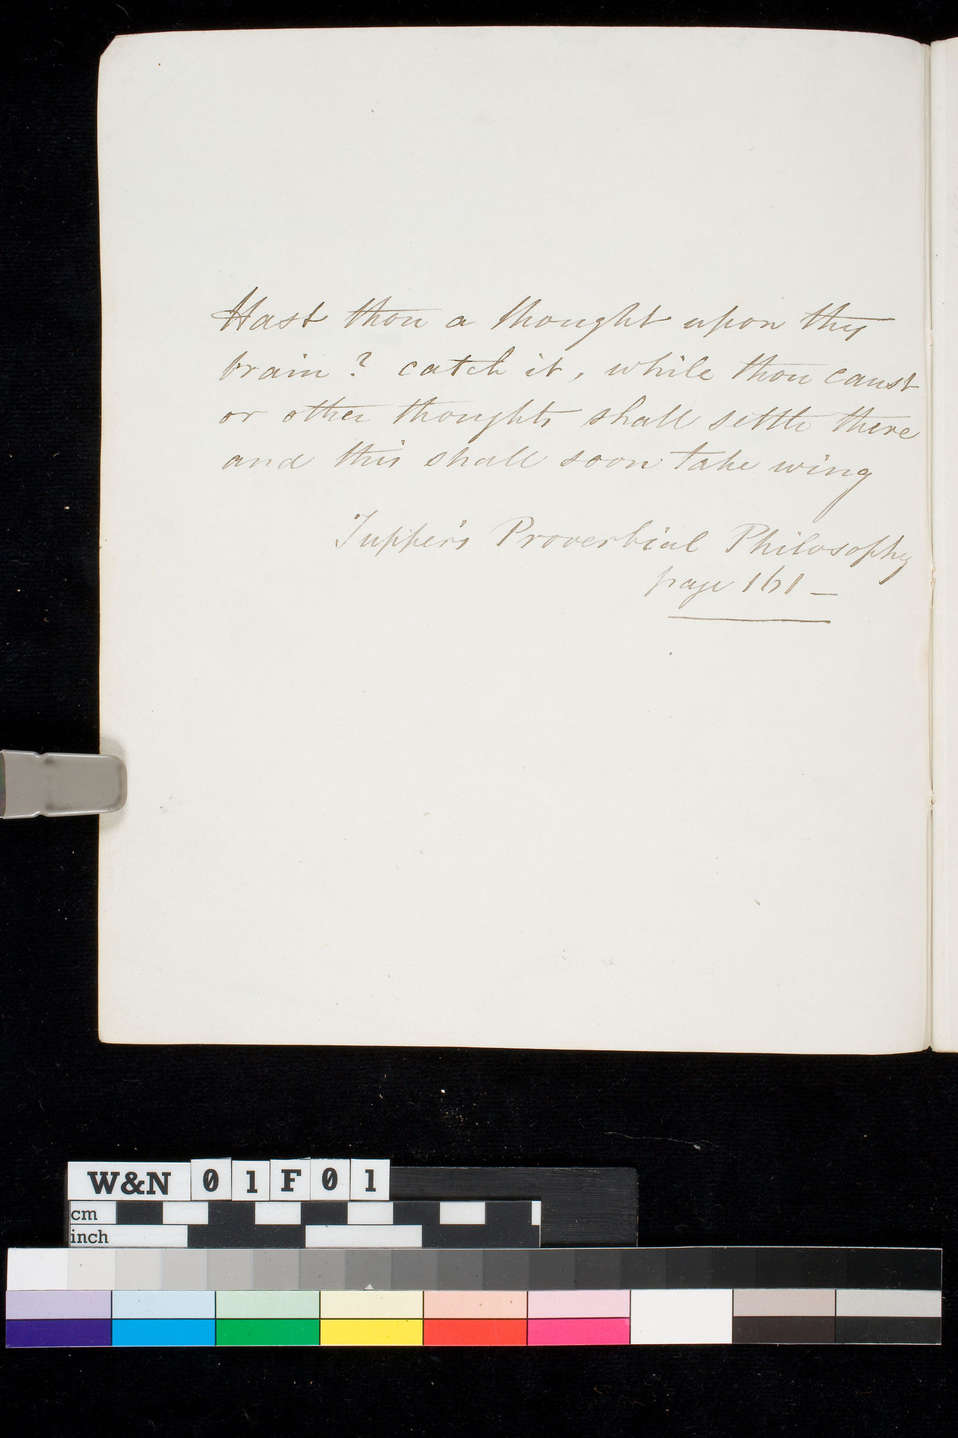 Hast thou a thought upon thy
brain? catch it, while thou canst
or other thoughts shall settle there
and this shall soon take wing
Tupper's Proverbial Philosophy
page 161 —
W&N 01F01
cm
inch